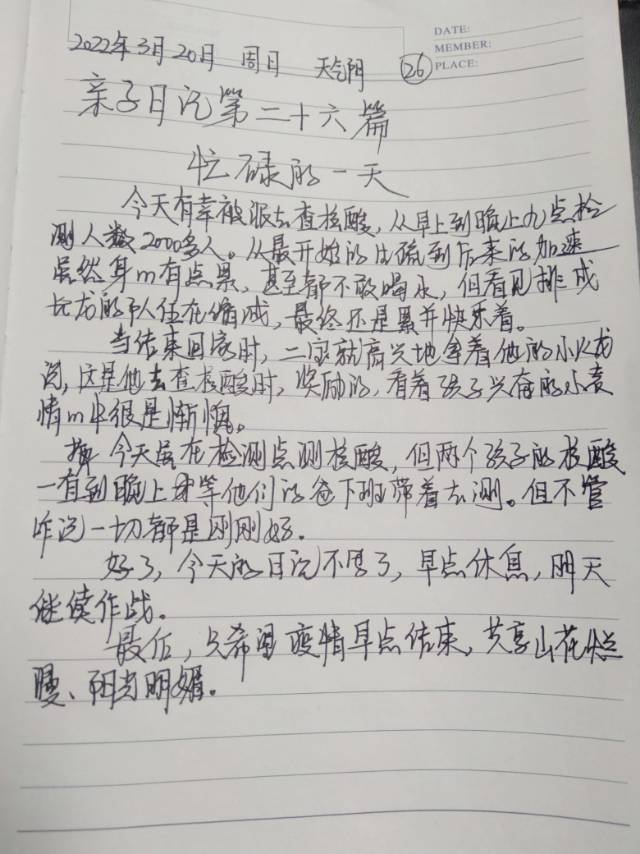 DATE:
MEMBER:
PLACE:
2022年3月20日 周日 天气阴 26
亲子日记第二十六篇
忙碌的一天
今天有幸被派去查核酸,从早上到晚上九点检
测人数2000多人。从最开始的生疏到后来的加速
虽然身心有点累,甚至都不敢喝水,但看见排成
长龙的队伍在缩减,最终还是累并快乐着。
当结束回家时,二宝就高兴地拿着他的小火龙
说,这是他去查核酸时,奖励的,看着孩子兴奋的小表
情心中很是惭愧。
今天虽在检测点测核酸,但两个孩子的核酸
一直到晚上才等他们的爸下班带着去测。但不管
咋说一切都是刚刚好.
好了,今天的日记不写了,早点休息,明天
继续作战。
最后,只希望疫情早点结束,共享山花烂
漫、阳光明媚。